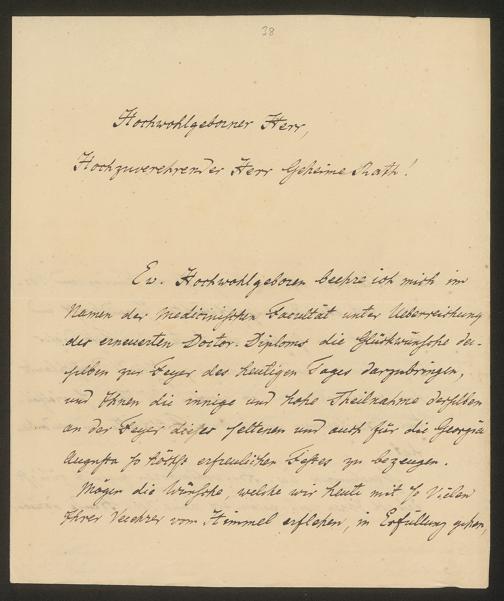 38
Hochwohlgeborner Herr,
Hochzuverehrender Herr Geheime Rath!
Ew. Hochwohlgeboren beehre ich mich im
Namen der medicinischen Facultät unter Ueberreichung
des erneuerten Doctor-Diploms die Glückwünsche der-
selben zur Feyer des heutigen Tages darzubringen,
und Ihnen die innige und hohe Theilnahme derselben
an der Feyer dieses seltenen und auch für die Georgia
Augusta so höchst erfreulichen Festes zu bezeugen.
Mögen die Wünsche, welche wir heute mit so Vielen
Ihrer Verehrer vom Himmel erflehen, in Erfüllung gehen,